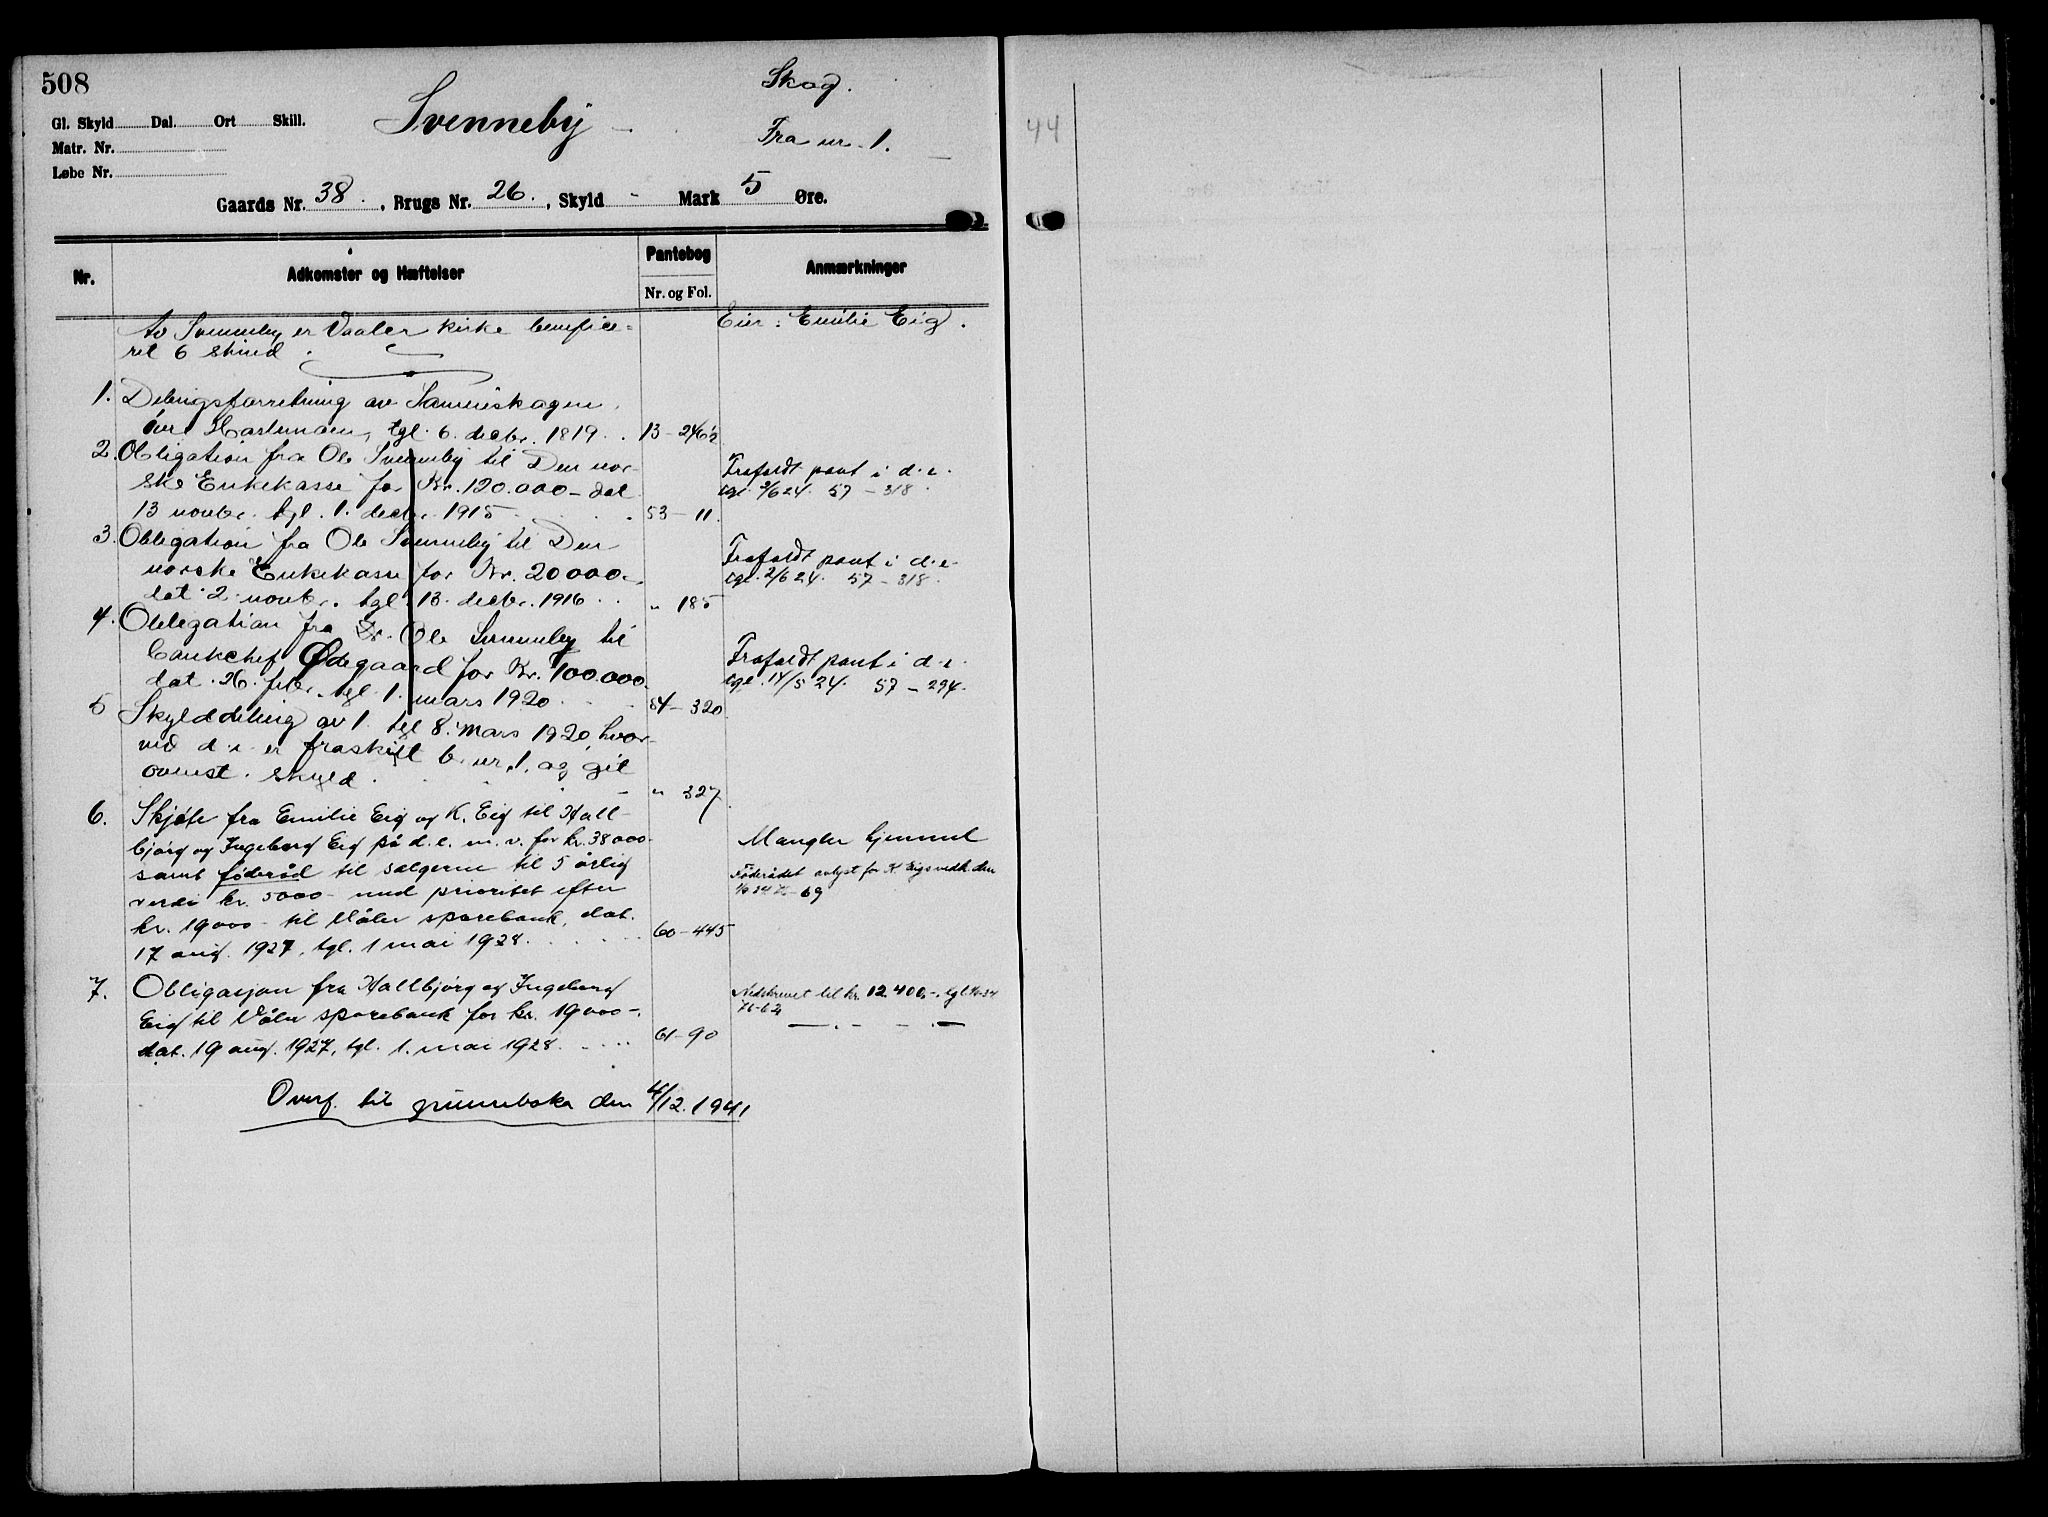 508
Skog.
Svenneby
Gl. Skyld Dal. Ort Skill.
Matr. Nr.
Løbe Nr.
Fra nr. 1.
44
Gaards Nr. 38. , Brugs Nr. 26. , Skyld - Mark 5 Øre.
Nr. Adkomster og Hæftelser Pantebog Nr. og Fol. Anmærkninger
Av Svenneby er Vaaler kirke benefice- Eier: Emilie Eig.
ret 6 skind.
1. Delingsforretning av Sameieskogen
øvre Haslemoen, tgl. 6. decbr. 1819. 13-
2. Obligation fra Ole Svenneby til Den nor- Frafaldt pant i d.e.
ske Enkekasse for Kr. 120.000- dat. tgl. 2/6 24. 57-318.
13 novbr. tgl. 1. decbr. 1915 53-11.
3. Obligation fra Ole Svenneby til Den Frafaldt pant i d.e.
norske Enkekasse for Kr. 20000-, tgl. 2/6 24. 57-318.
dat. 2 novbr. tgl. 13. decbr. 1916 " 185
4. Obligation fra Ole Svenneby til
bankchef Ødegaard for Kr. 100.000. Frafaldt pant i d.e.
dat. 26. febr. tgl. 1. mars 1920 54-320 tgl. 14/5 24. 57-294.
5 Skylddeling av 1. tgl 8. mars 1920, hvor-
ved d.e. er fraskilt b. nr. 1. og git
ovenst. skyld. " 327
6. Skjøte fra Emilie Eig og K. Eig til Hall-
bjørg og Ingeborg Eig på d.e. m.v. for kr. 38000- Mangler hjemmel
samt føderåd til sælgerne til 5 årlig Føderådet avlyst for K. Eigs vedk. den
verdi kr. 5000- med prioritet efter 69
kr. 19000- til Våler sparebank, dat.
17 aug. 1927, tgl. 1 mai 1928. 60-445
7. Obligasjon fra Hallbjørg og Ingeborg Nedskrevet til kr. 12.400,-. tgl.
Eig til Våler sparebank for kr. 19000-.
dat. 19 aug. 1927, tgl. 1. mai 1928. 61-90
Overf. til grunnboka den 4/12. 1941